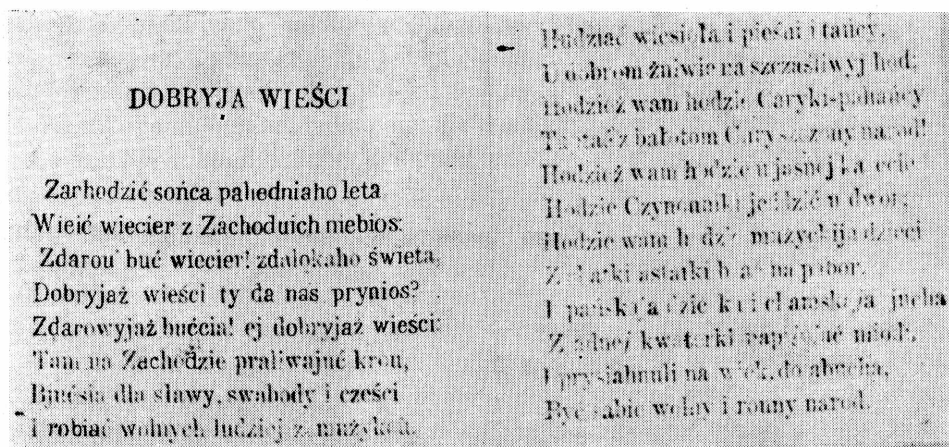 DOBRYJA WIEŚCI
Zarhodzić sońca pahedniaho leta
Wieić wiecier z Zachoduich niebios:
Zdarou buć wiecier! zdalokaho świeta,
Dobryjaż wieści ty da nas prynios?
Zdarowyjaż bućcia! ej dobryjaż wieści:
Tam na Zachodzie praliwajuć krou,
Bjućsia dla sławy, swabody i cześci
i robiać wolnych ludziej z mużykoú.
Hudziać wiesioła i pieśni i tancy,
U dobrom żniwie na szczaśliwyj hod;
Hodzież wam hodzie Caryki-pahańcy
z bałotom narod!
Hodzież wam hodzie u jasnej
Hodzie Czynouniki jeździć u dwor,
Hodzie wam dzieci
astatki brać na pabor.
I jucha
Z adnej kwatarki miod;
I prysiahnuli na wiek, do
Być sabie wolny i rouny narod.